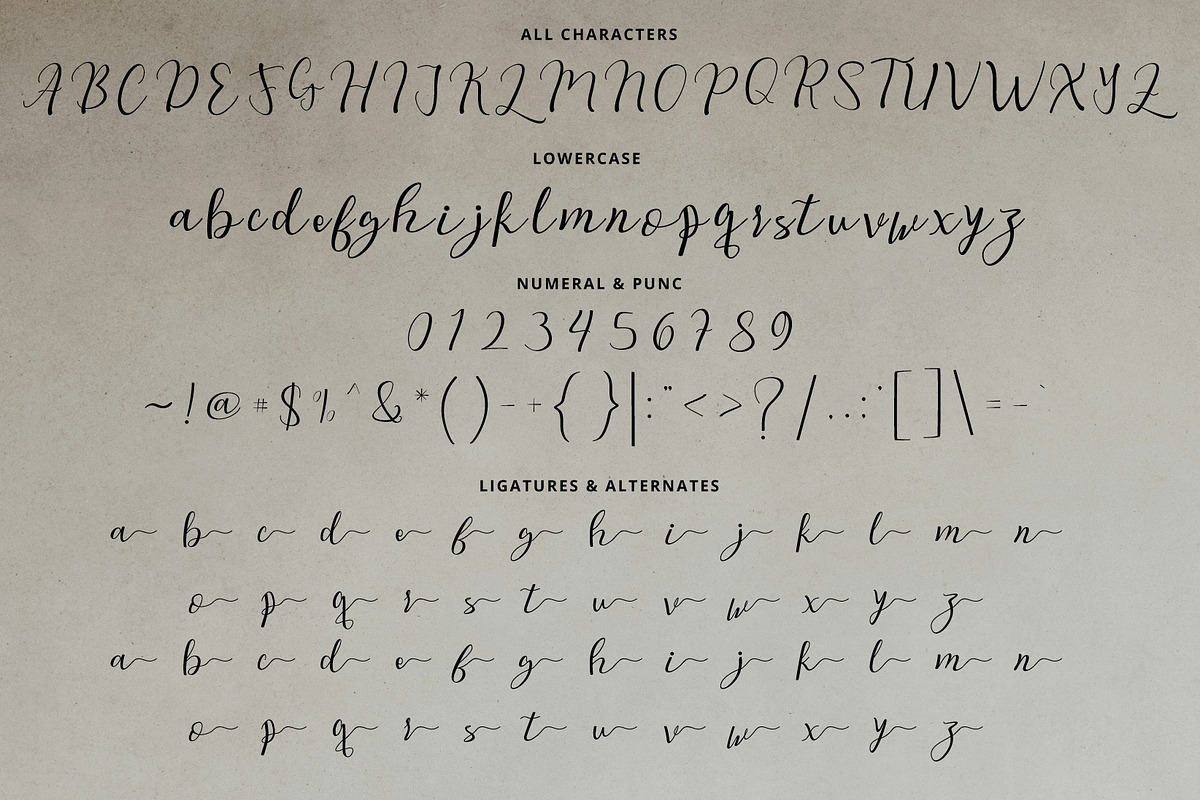 ALL CHARACTERS
ABCDEFGHIJKLMNOPQRSTUVWXYZ
LOWERCASE
abcdefghijklmnopqrstuvwxyz
NUMERAL & PUNC
0123456789
~!@#$%^&*()-+{}|:"<>?/.,;'[]\=-`
LIGATURES & ALTERNATES
a b c d e f g h i j k l m n
o p q r s t u v w x y z
a b c d e f g h i j k l m n
o p q r s t u v w x y z